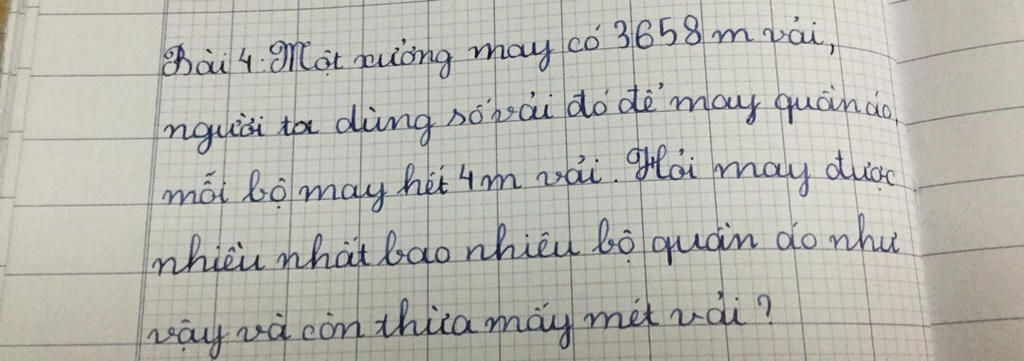 Bài 4: Một xưởng may có 3658 m vải,
người ta dùng số vải đó để may quần áo,
mỗi bộ may hết 4 m vải. Hỏi may được
nhiều nhất bao nhiêu bộ quần áo như
vậy và còn thừa mấy mét vải?